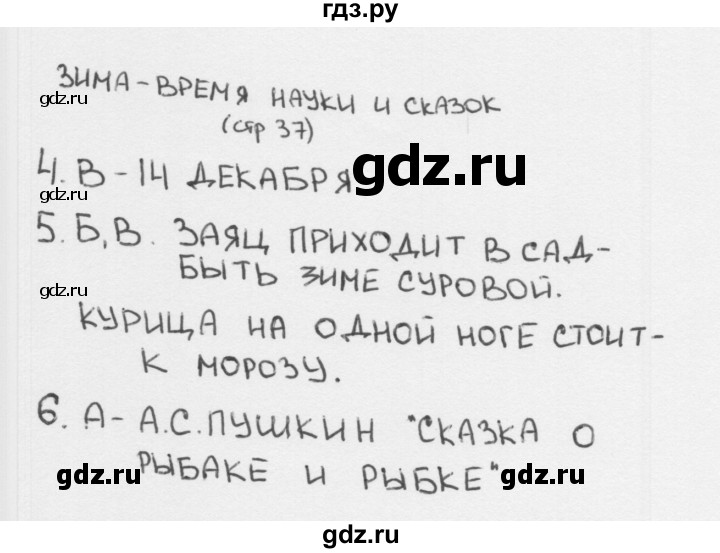 гдз.ру
ЗИМА-ВРЕМЯ НАУКИ И СКАЗОК
gdz.ru
(стр 37)
4. В - 14 ДЕКАБРЯ
gdz.ru
gdz.ru
5. Б, В. ЗАЯЦ ПРИХОДИТ В САД-
БЫТЬ ЗИМЕ СУРОВОЙ.
gdz.ru
КУРИЦА НА ОДНОЙ НОГЕ СТОИТ-
К МОРОЗУ.
6. А- А.С.ПУШКИН "СКАЗКА О
РЫБАКЕ И РЫБКЕ"
gdz.ru
gdz.ru
gdz.ru